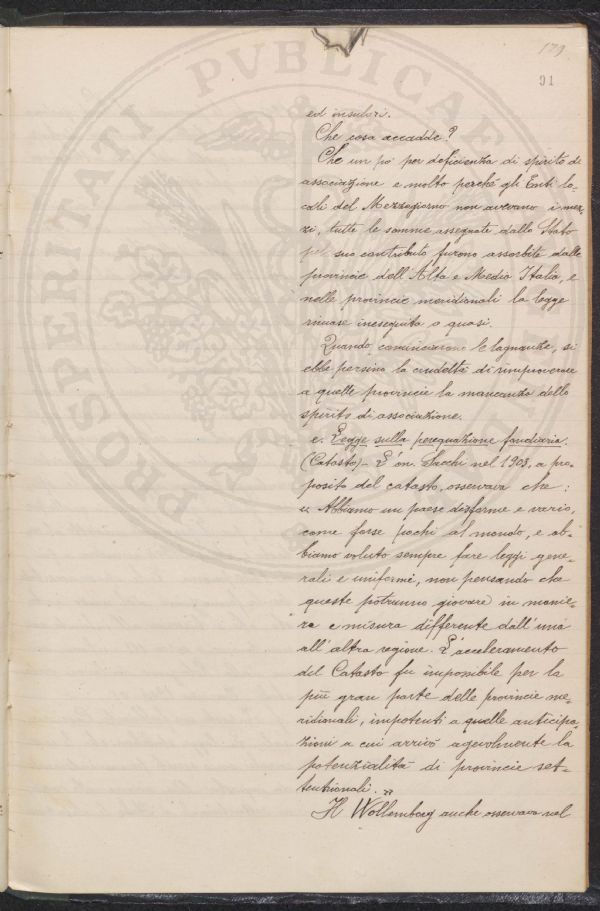 179
91
ed insulari.
Che cosa accadde?
Che un po' per deficienza di spirito di
associazione e molto perché gli Enti lo-
cali del Mezzogiorno non avevano i mez-
zi, tutte le somme assegnate dallo Stato
pel suo contributo furono assorbite dalle
provincie dell'Alta e Media Italia, e
nelle provincie meridionali la legge
rimase ineseguita o quasi.
Quando cominciarono le lagnanze, si
ebbe persino la crudeltà di rimproverare
a quelle provincie la mancanza dello
spirito di associazione.
e. Legge sulla perequazione fondiaria.
(Catasto) - L'on. Sacchi nel 1903, a pro-
posito del catasto, osservava che:
« Abbiamo un paese disforme e vario,
come forse pochi al mondo, e ab-
biamo voluto sempre fare leggi gene-
rali e uniformi, non pensando che
queste potranno giovare in manie-
ra e misura differente dall'una
all'altra regione. L'acceleramento
del Catasto fu imponibile per la
più gran parte delle provincie me-
ridionali, impotenti a quelle anticipa-
zioni a cui arrivò agevolmente la
potenzialità di provincie set-
tentrionali. »
Il Wollemborg anche osservava nel
PROSPERITATI PVBLICAE